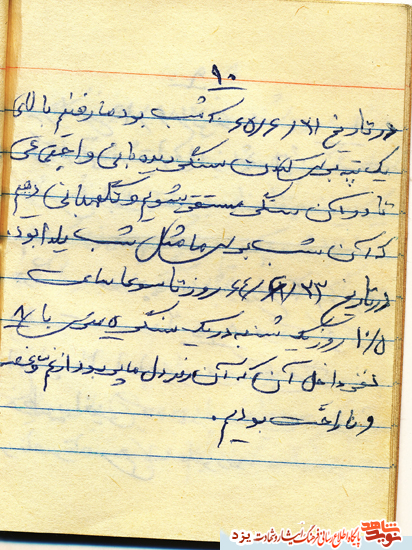 ۹۰
در تاریخ ۶۵/۶/۳۱ شب بود ما رفتیم بالای
یک تپه برای سنگر دیده بانی و اجتماعی
تا در آن سنگر مستقر شویم و نگهبانی دهیم
که آن شب برای ما مثل شب یلدا بود.
در تاریخ ۶۴/ /۲۳ روز تاسوعا ساعت
۱۰/۵ روز یک شنبه در یک سنگر با ۸
نفر داخل آن که آن روز دل ما پر بود از غم و غصه
و ناراحت بودیم.
نوید شاهد
پایگاه اطلاع رسانی فرهنگ ایثار و شهادت یزد